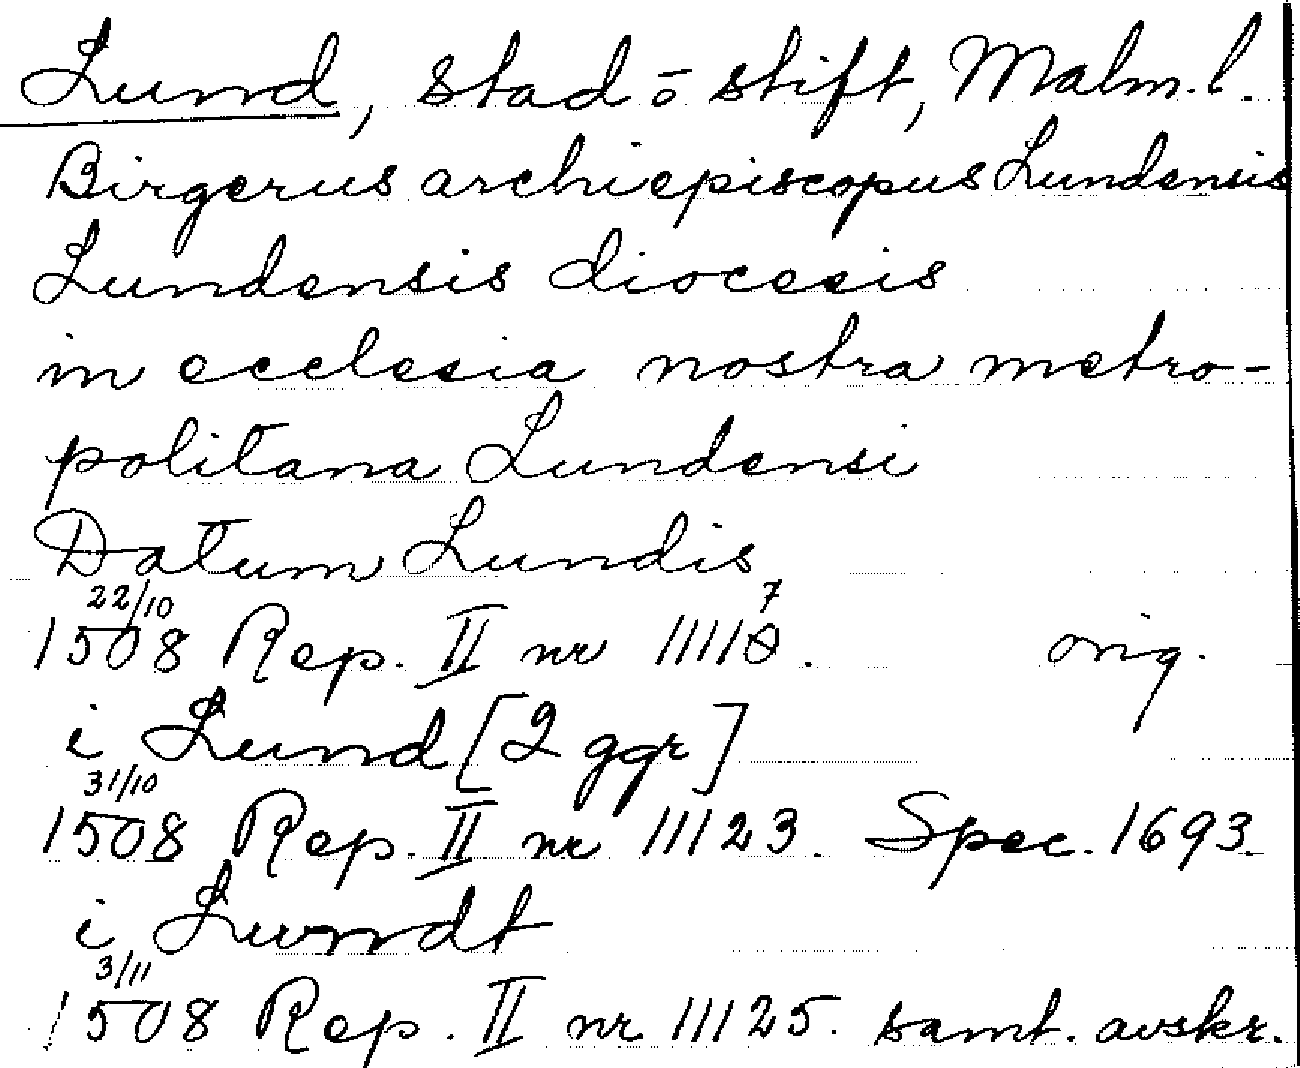 Lund, stad o stift, Malm. l.
Birgerus archiepiscopus Lundensis
Lundensis diocesis
in ecclesia nostra metro-
politana Lundensi
Datum Lundis
22/10 7
1508 Rep. II nr 11118. orig.
i Lund [2 ggr]
31/10
1508 Rep. II nr 11123. Spec. 1693.
i Lundt
3/11
1508 Rep. II nr 11125. samt. avskr.